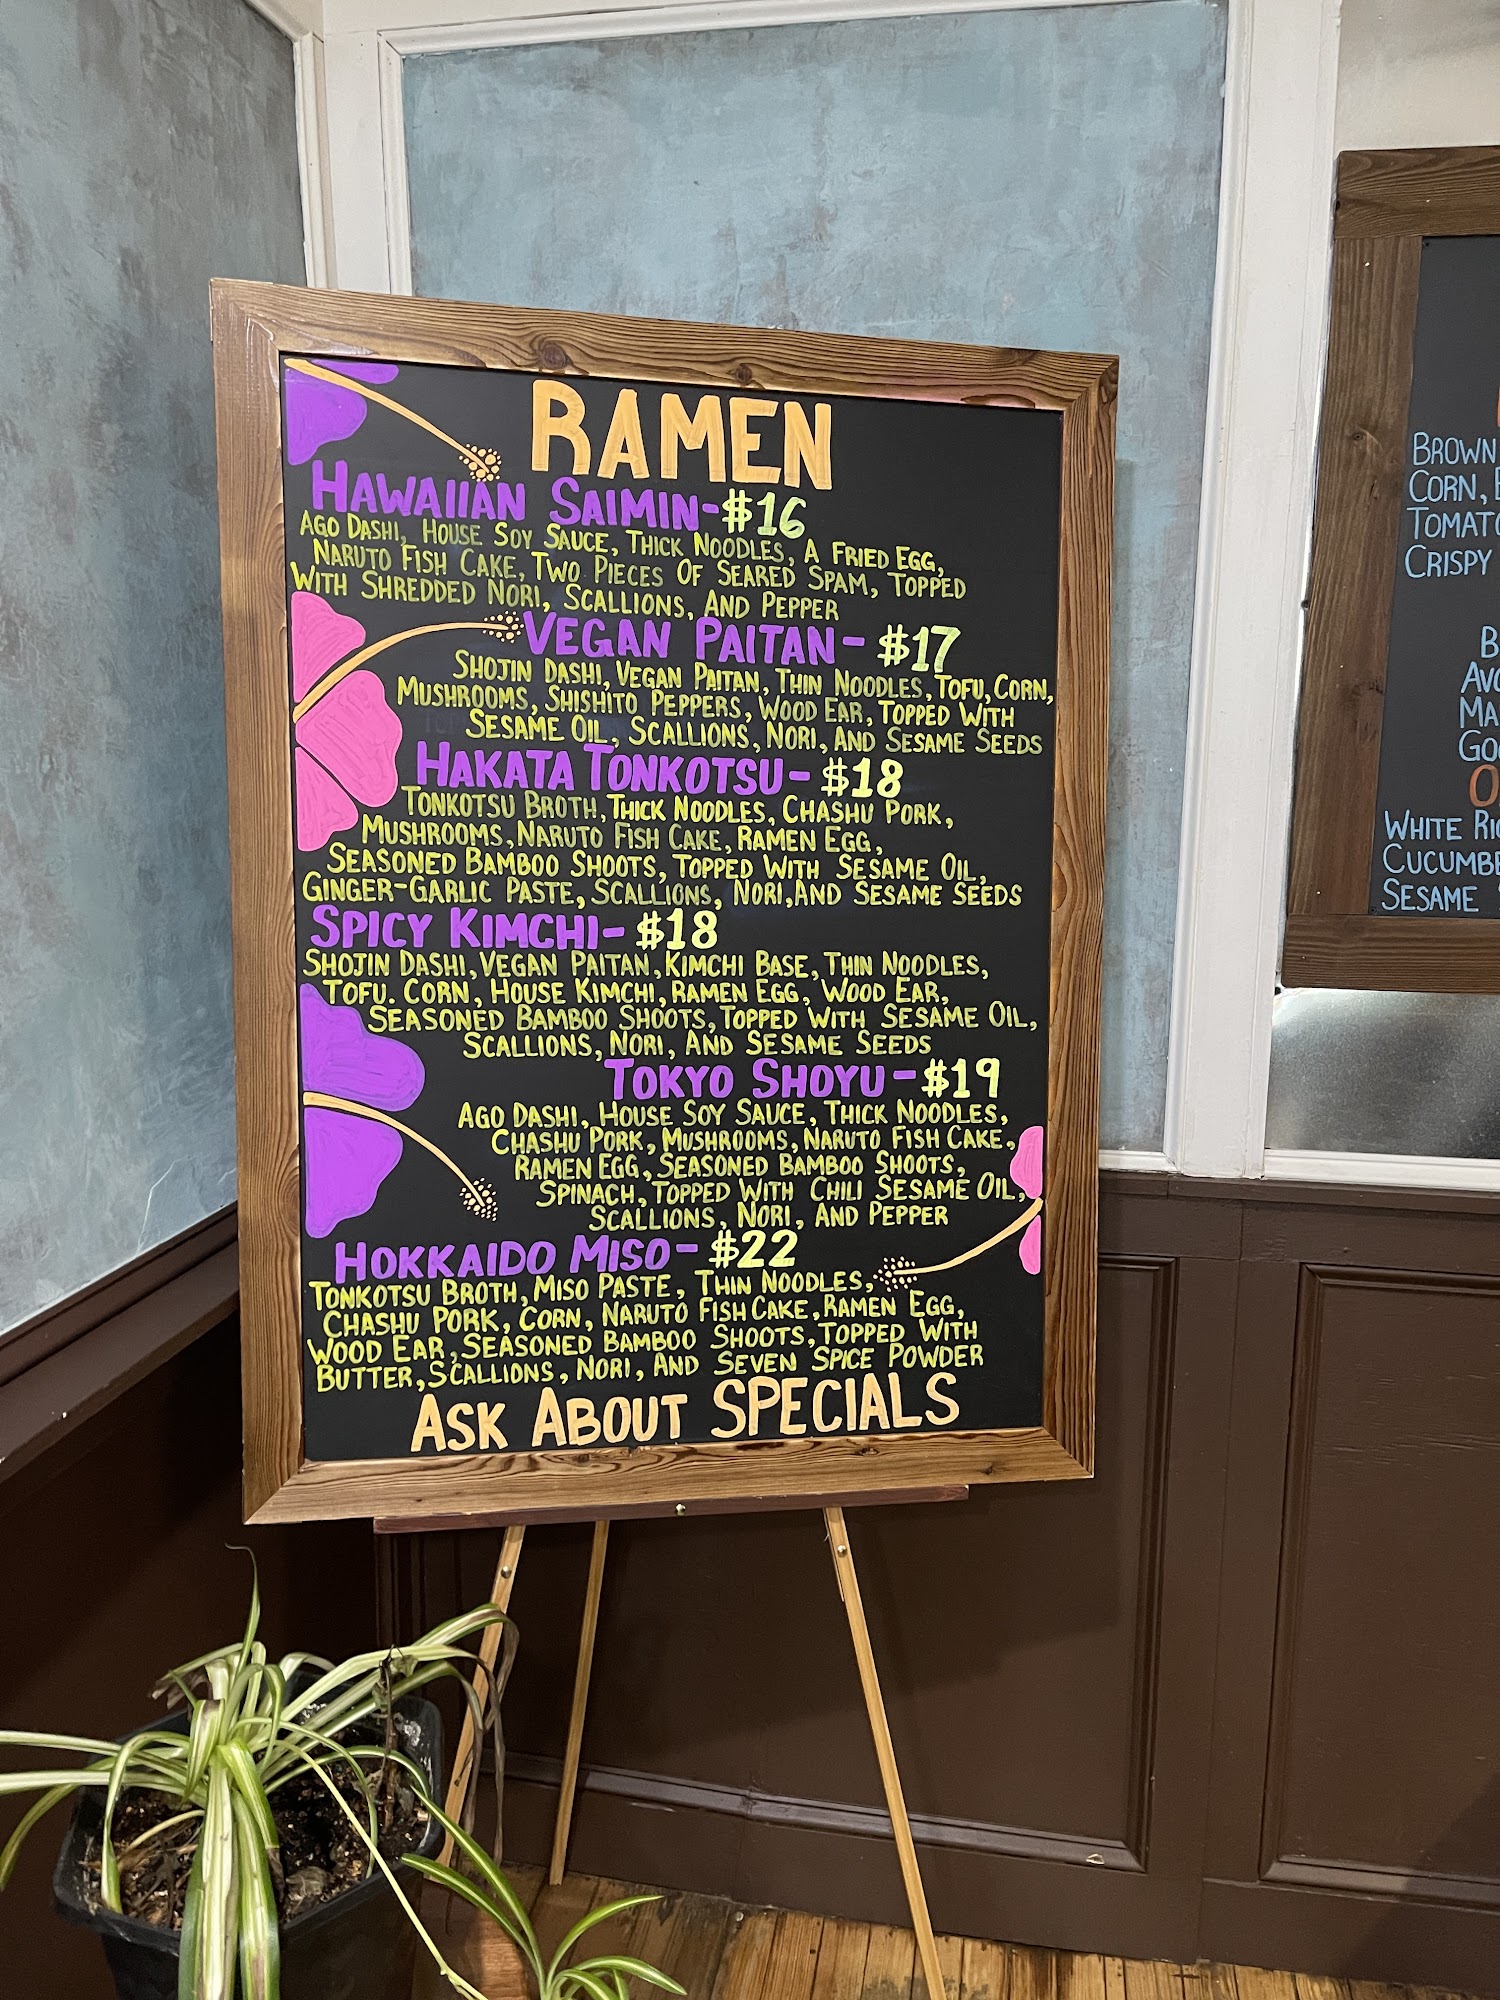 RAMEN
HAWAIIAN SAIMIN-$16
AGO DASHI, HOUSE SOY SAUCE, THICK NOODLES, A FRIED EGG,
NARUTO FISH CAKE, TWO PIECES OF SEARED SPAM, TOPPED
WITH SHREDDED NORI, SCALLIONS, AND PEPPER
VEGAN PAITAN- $17
SHOJIN DASHI, VEGAN PAITAN, THIN NOODLES, TOFU, CORN,
MUSHROOMS, SHISHITO PEPPERS, WOOD EAR, TOPPED WITH
SESAME OIL, SCALLIONS, NORI, AND SESAME SEEDS
HAKATA TONKOTSU- $18
TONKOTSU BROTH, THICK NOODLES, CHASHU PORK,
MUSHROOMS, NARUTO FISH CAKE, RAMEN EGG,
SEASONED BAMBOO SHOOTS, TOPPED WITH SESAME OIL,
GINGER-GARLIC PASTE, SCALLIONS, NORI, AND SESAME SEEDS
SPICY KIMCHI- $18
SHOJIN DASHI, VEGAN PAITAN, KIMCHI BASE, THIN NOODLES,
TOFU. CORN, HOUSE KIMCHI, RAMEN EGG, WOOD EAR,
SEASONED BAMBOO SHOOTS, TOPPED WITH SESAME OIL,
SCALLIONS, NORI, AND SESAME SEEDS
TOKYO SHOYU-$19
AGO DASHI, HOUSE SOY SAUCE, THICK NOODLES,
CHASHU PORK, MUSHROOMS, NARUTO FISH CAKE,
RAMEN EGG, SEASONED BAMBOO SHOOTS,
SPINACH, TOPPED WITH CHILI SESAME OIL,
SCALLIONS, NORI, AND PEPPER
HOKKAIDO MISO- $22
TONKOTSU BROTH, MISO PASTE, THIN NOODLES,
CHASHU PORK, CORN, NARUTO FISH CAKE, RAMEN EGG,
WOOD EAR, SEASONED BAMBOO SHOOTS, TOPPED WITH
BUTTER, SCALLIONS, NORI, AND SEVEN SPICE POWDER
ASK ABOUT SPECIALS
BROWN
CORN,
CRISPY
WHITE
SESAME